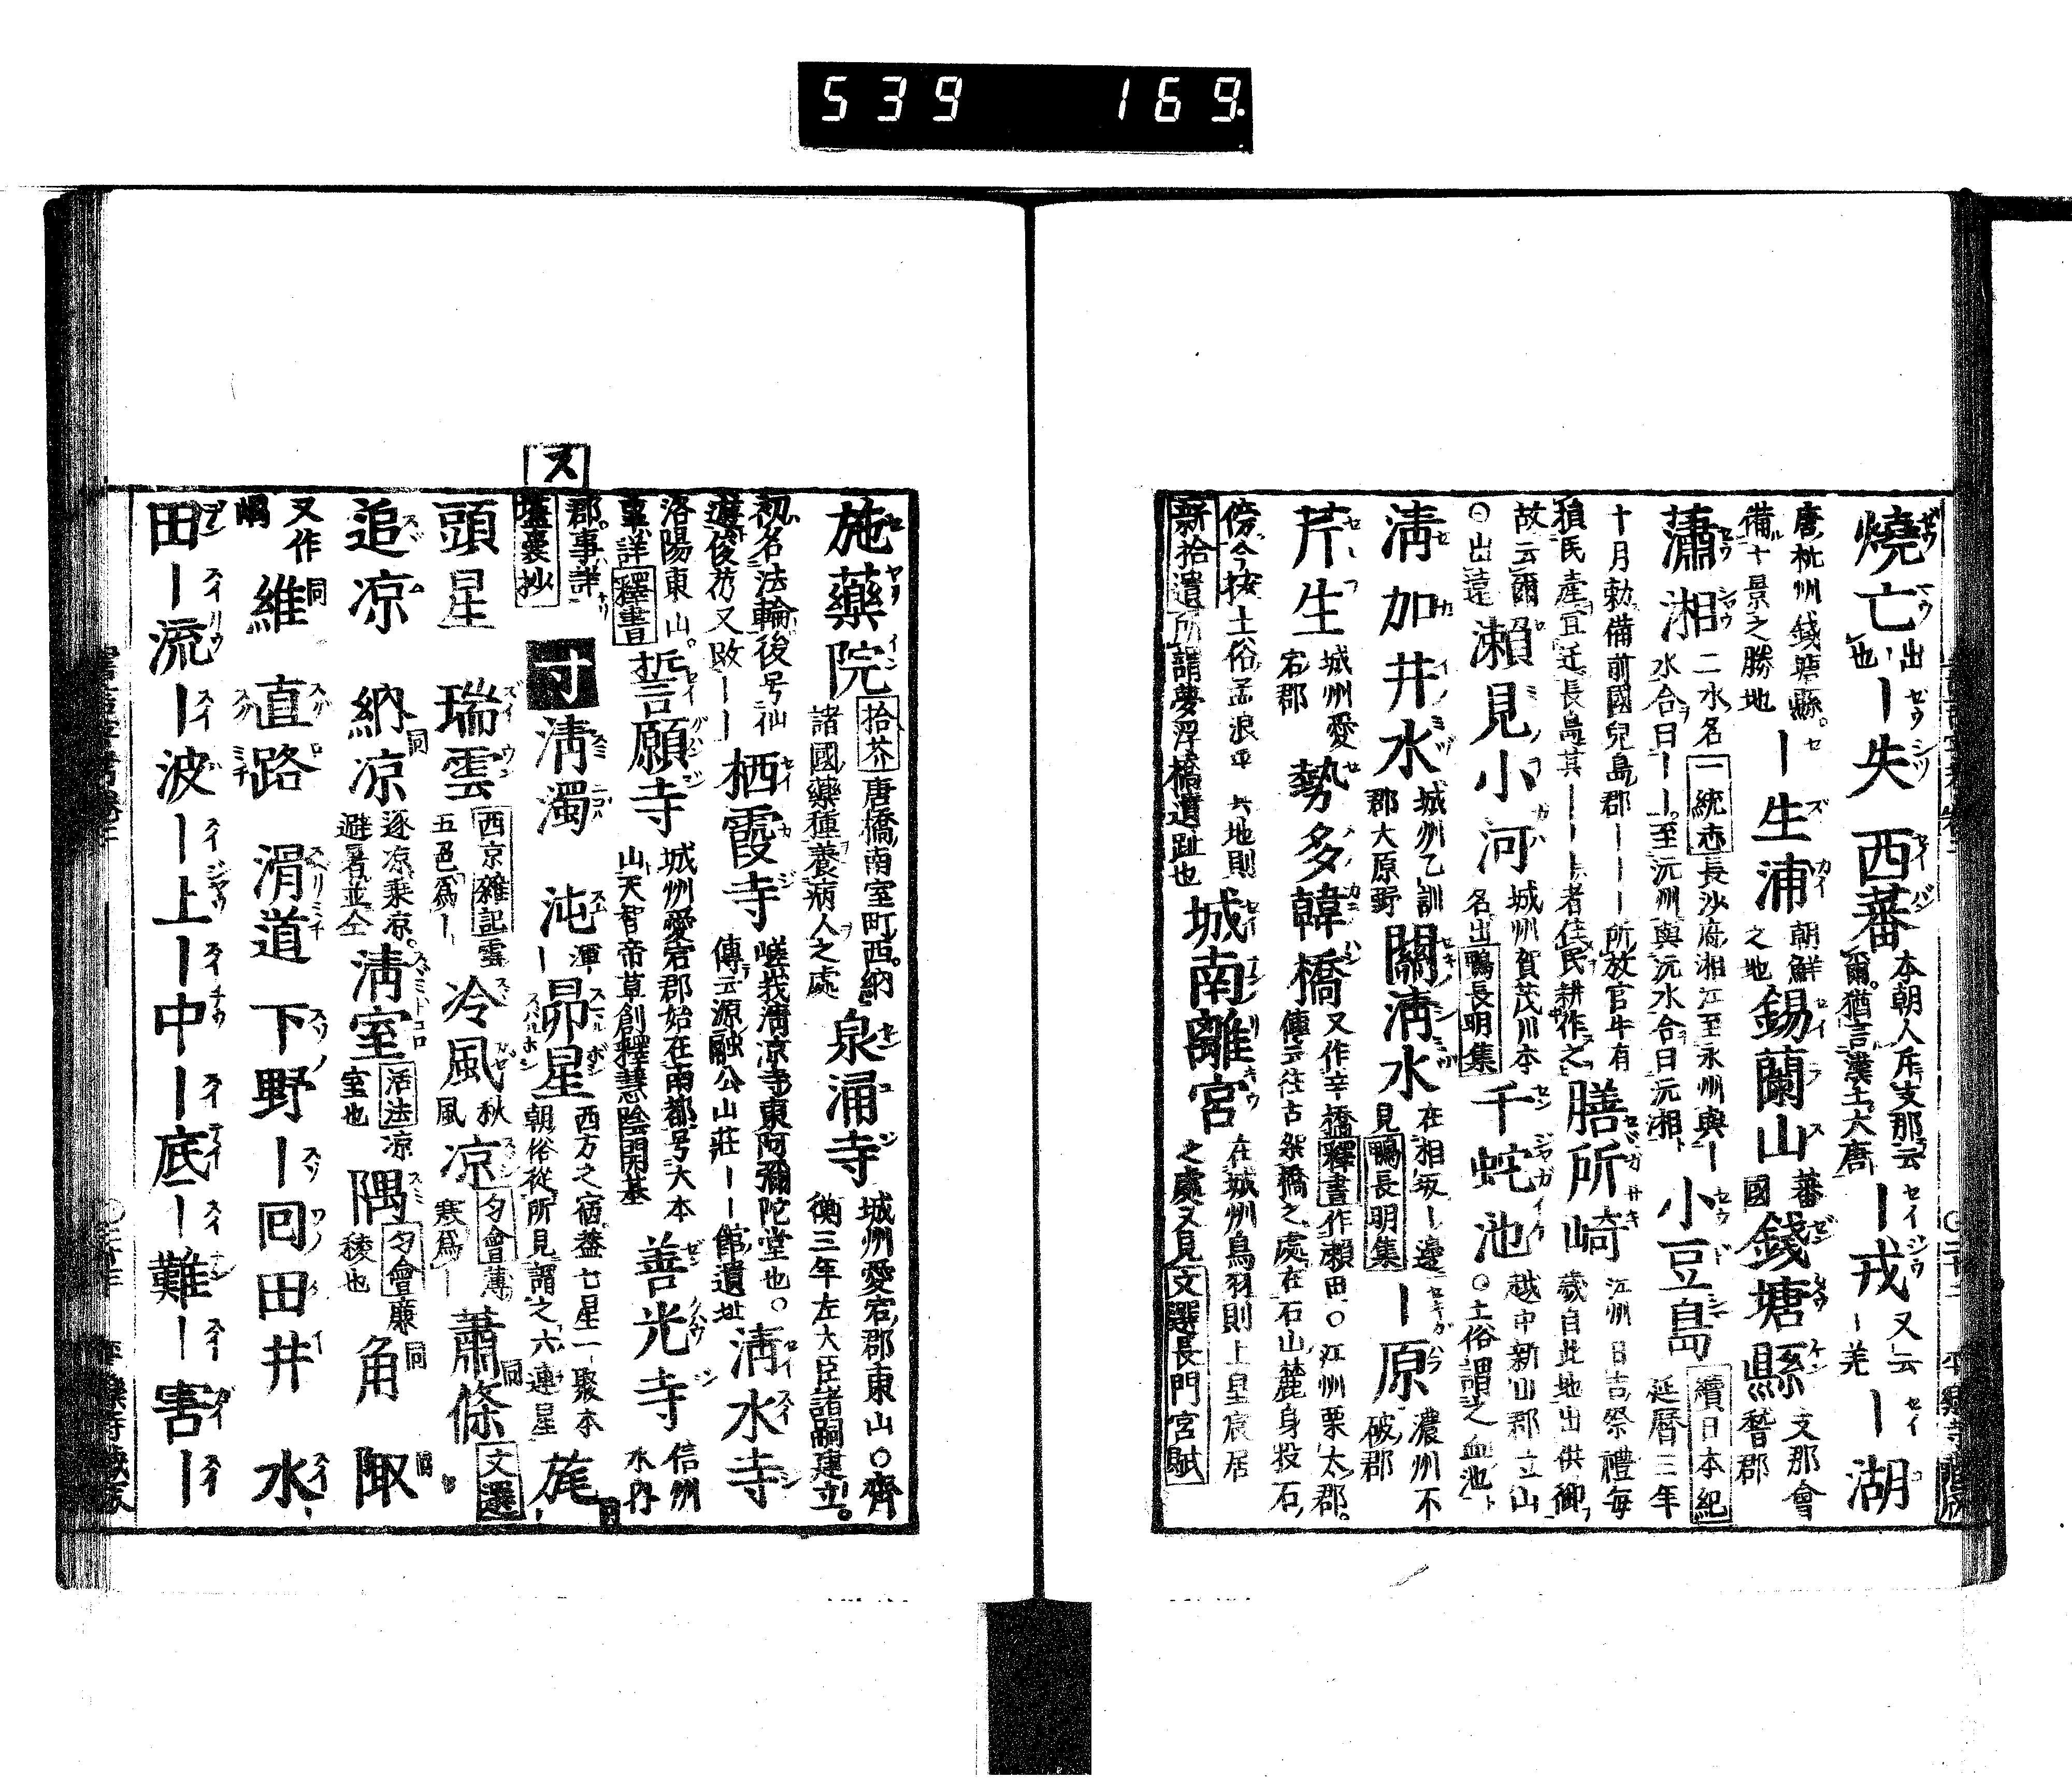 539 169
燒亡出也ー失 西蕃本朝人斥支那云爾猶言漢土大唐ー戎又云ー羌ー湖
唐杭州錢塘縣備十景之勝地ー生浦朝鮮之地錫蘭山蕃國錢塘縣支那會稽郡
瀟湘二水名一統志長沙府湘江至永州與ー水合曰ーー至沅州與沅水合曰沅湘小豆島續日本紀延曆三年
十月勅備前國兒島郡ーーー所放官牛有損民產宜迁長島其ーーー者住民耕作之膳所崎江州日吉祭禮每歲自此地出供御
故云爾○出遠瀨見小河城州賀茂川本名出鴨長明集千蛇池越中新山郡立山○土俗謂之血池
清加井水城州乙訓郡大原野關清水在相坂ー邊見鴨長明集ー原濃州不破郡
芹生城州愛宕郡勢多韓橋又作辛橋釋書作瀨田○江州栗太郡傳云往古架橋之處在石山麓身投石
傍今按土俗孟浪平此地則新拾遺所謂夢浮橋遺趾也城南離宮在城州鳥羽則上皇宸居之處又見文選長門宮賦
施藥院拾芥唐橋南室町西納諸國藥種養病人之處泉涌寺城州愛宕郡東山○齊衡三年左大臣諸嗣建立
初名法輪後号仙遊俊芿又改ーー栖霞寺嵯峩清凉寺東阿彌陀堂也○傳云源融公山莊ーー館遺址清水寺
洛陽東山事詳釋書誓願寺城州愛宕郡始在南都号大本山天智帝草創釋慧隱開基善光寺信州水內
郡事詳壒囊抄
ス
寸清濁 沌渾ー昴星西方之宿益七星一聚本朝俗從所見謂之六連星旄同
頭星 瑞雲西京雜記雲五色爲ー冷風秋風凉匀會薄寒爲ー蕭條同文選
追凉 納凉同逐凉乘凉避暑並仝清室活法凉室也隅匀會廉稜也角同陬同
又作嵎維同直路 滑道 下野ー回田井 水
田ー流ー波ー上ー中ー底ー難ー害ー